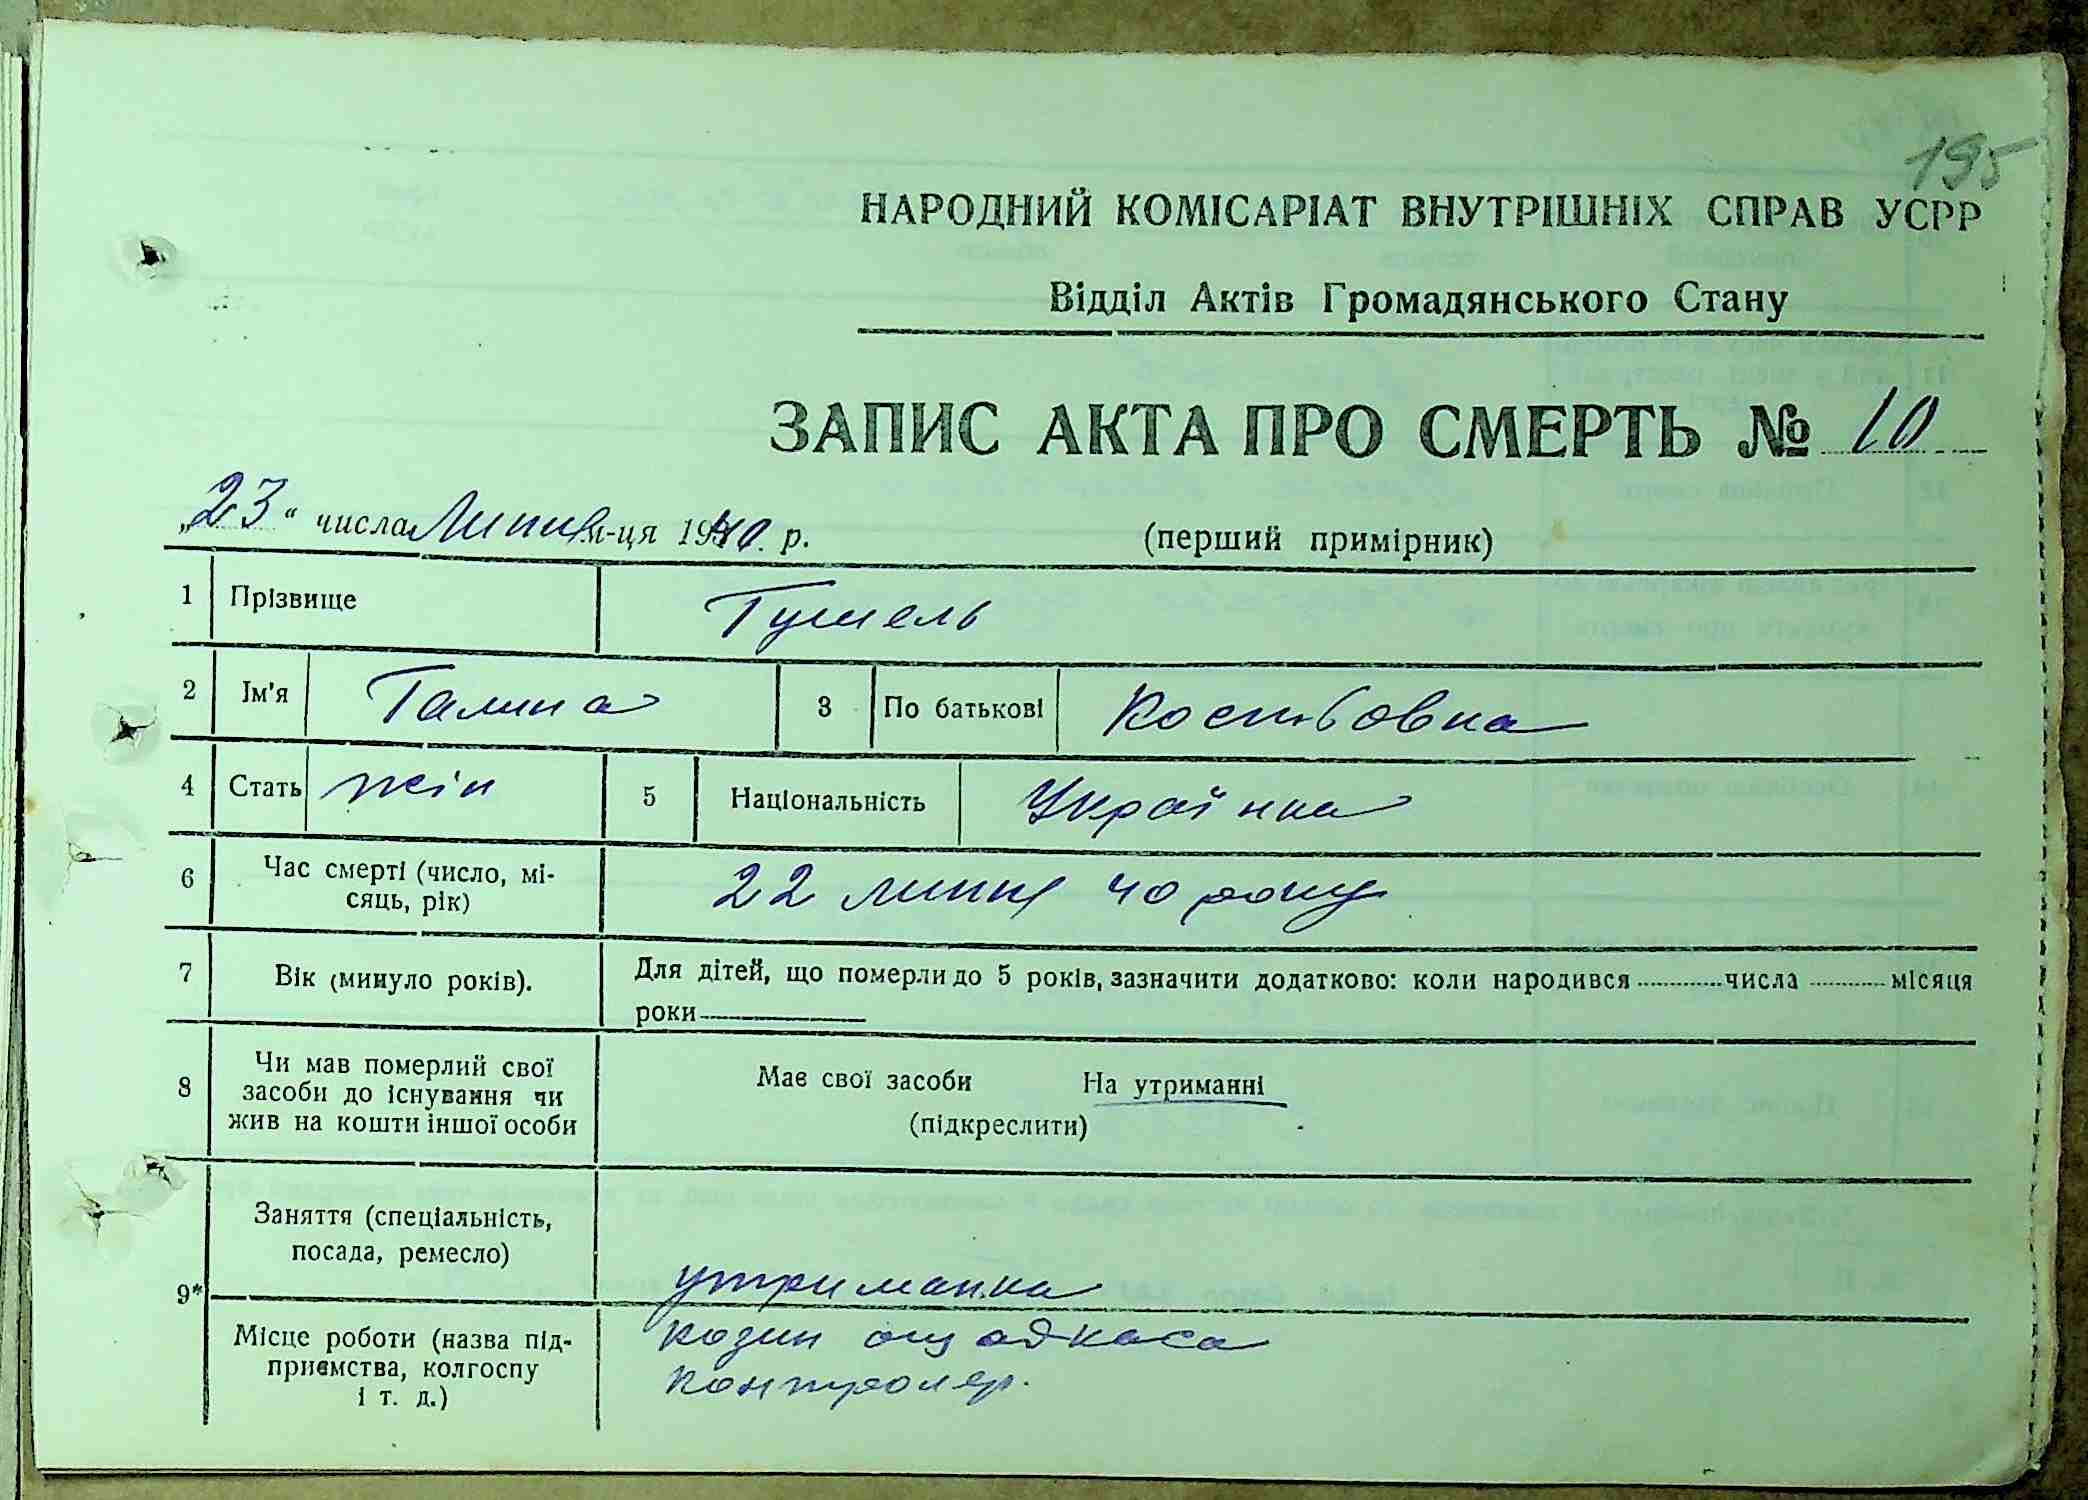 195
НАРОДНИЙ КОМІСАРІАТ ВНУТРІШНІХ СПРАВ УСРР
Відділ Актів Громадянського Стану
ЗАПИС АКТА ПРО СМЕРТЬ № 10
„23“ числа Липня м-ця 1940. р. (перший примірник)
1 Прізвище Гушель
2 Ім'я Галина 3 По батькові Костьовна
4 Стать жін 5 Національність Українка
6 Час смерті (число, мі-
сяць, рік) 22 липня 40 року
7 Вік (минуло років). Для дітей, що померли до 5 років, зазначити додатково: коли народився числа місяця
роки
8 Чи мав померлий свої
засоби до існування чи
жив на кошти іншої особи
Має свої засоби На утриманні
(підкреслити)
9* Заняття (спеціальність,
посада, ремесло)
утриманка
Місце роботи (назва під-
приємства, колгоспу
і т. д.)
козин ощадкаса
контролер.